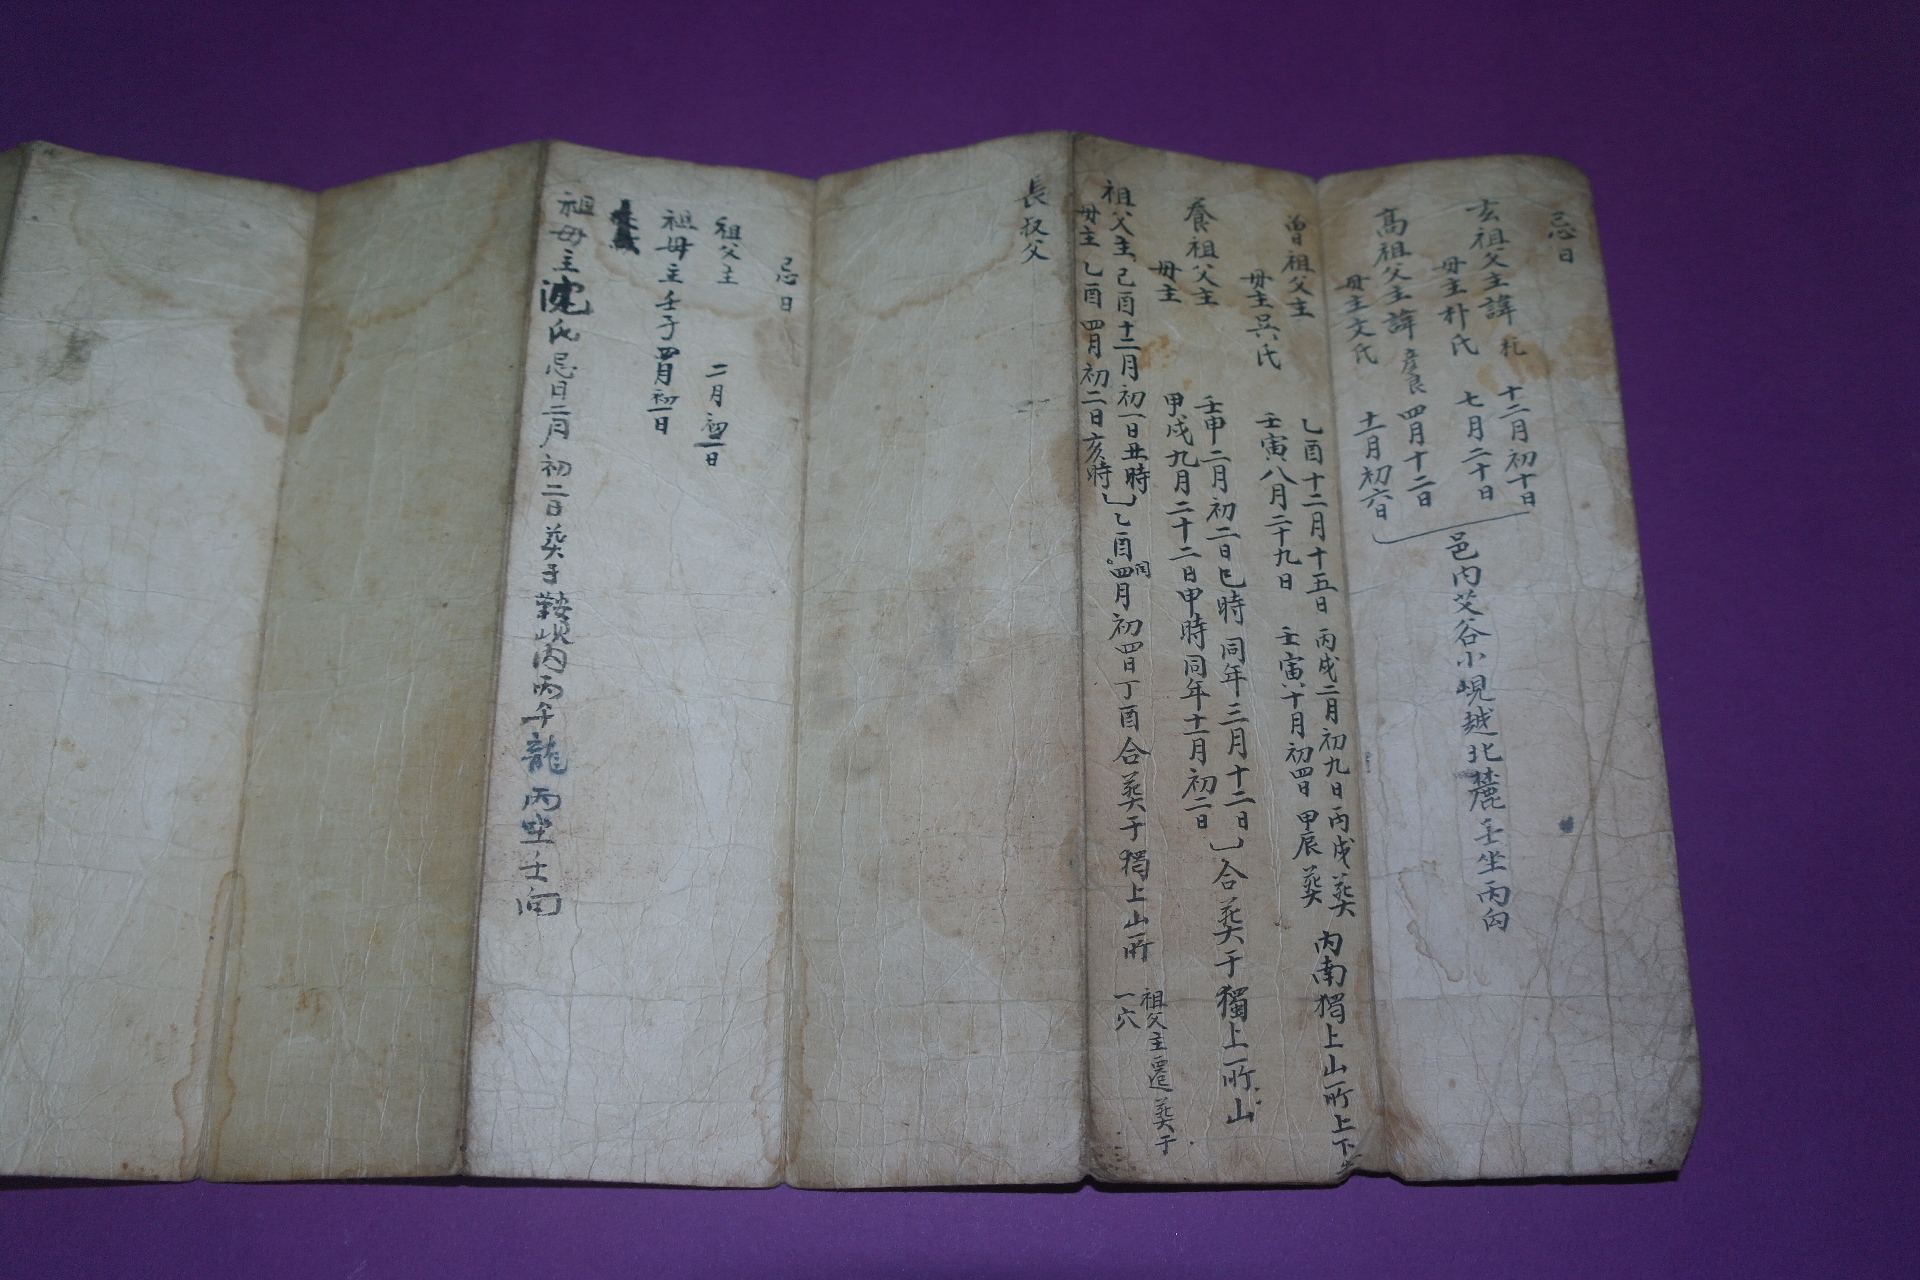 忌日
玄祖父主諱 札 十二月初十日
母主朴氏 七月二十日
高祖父主諱 彦良 四月十二日
母主文氏 十一月初六日
邑内艾谷小峴越北麓壬坐丙向
曾祖父主 乙酉十二月十五日 丙戌二月初九日丙戌葬 内南獨上山所上下
母主吳氏 壬寅八月二十九日 壬寅十月初四日甲辰葬
養祖父主 壬申二月初二日巳時同年三月十二日
母主 甲戌九月二十二日甲時同年十一月初二日
合葬于獨上所山
祖父主 己酉十二月初一日丑時
母主 乙酉四月初二日亥時
乙酉閏四月初四日丁酉合葬于獨上山所
祖父主遷葬于
一穴
長叔父
忌日
祖父主 二月初一日
祖母主 壬子四月初一日
祖母主沈氏忌日二月初二日葬于鞍峴内丙午龍丙坐壬向